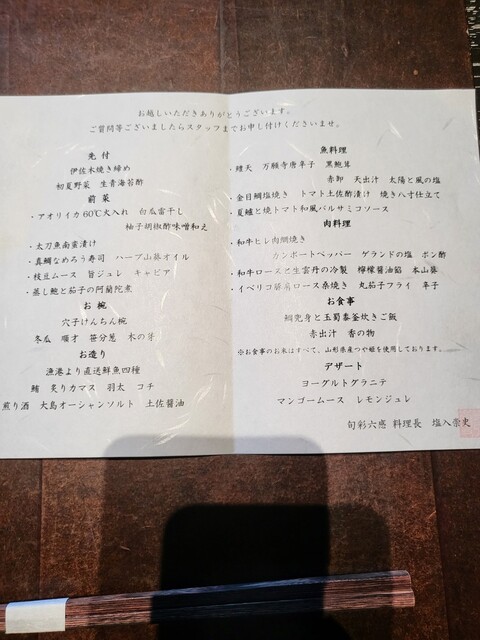 お越しいただきありがとうございます。
ご質問等ございましたらスタッフまでお申し付けくださいませ。
先 付
伊佐木焼き締め
初夏野菜 生青海苔酢
前 菜
・アオリイカ60℃火入れ 白瓜雷干し
柚子胡椒酢味噌和え
・太刀魚南蛮漬け
・真鯛なめろう寿司 ハーブ山葵オイル
・枝豆ムース 旨ジュレ キャビア
・蒸し鮑と茄子の阿蘭陀煮
お 椀
穴子けんちん椀
冬瓜 順才 笹分葱 木の芽
お造り
漁港より直送鮮魚四種
鮪 炙りカマス 羽太 コチ
煎り酒 大島オーシャンソルト 土佐醤油
魚料理
・鱧天 万願寺唐辛子 黒鮑茸
赤卸 天出汁 太陽と風の塩
・金目鯛塩焼き トマト土佐酢漬け 焼き八寸仕立て
・夏鱸と焼トマト和風バルサミコソース
肉料理
・和牛ヒレ肉網焼き
カンポートペッパー ゲランドの塩 ポン酢
・和牛ロースと生雲丹の冷製 檸檬醤油餡 本山葵
・イベリコ豚肩ロース桑焼き 丸茄子フライ 辛子
お食事
鯛兜身と玉蜀黍釜炊きご飯
赤出汁 香の物
※お食事のお米はすべて、山形県産つや姫を使用しております。
デザート
ヨーグルトグラニテ
マンゴームース レモンジュレ
旬彩六感 料理長 塩入崇史